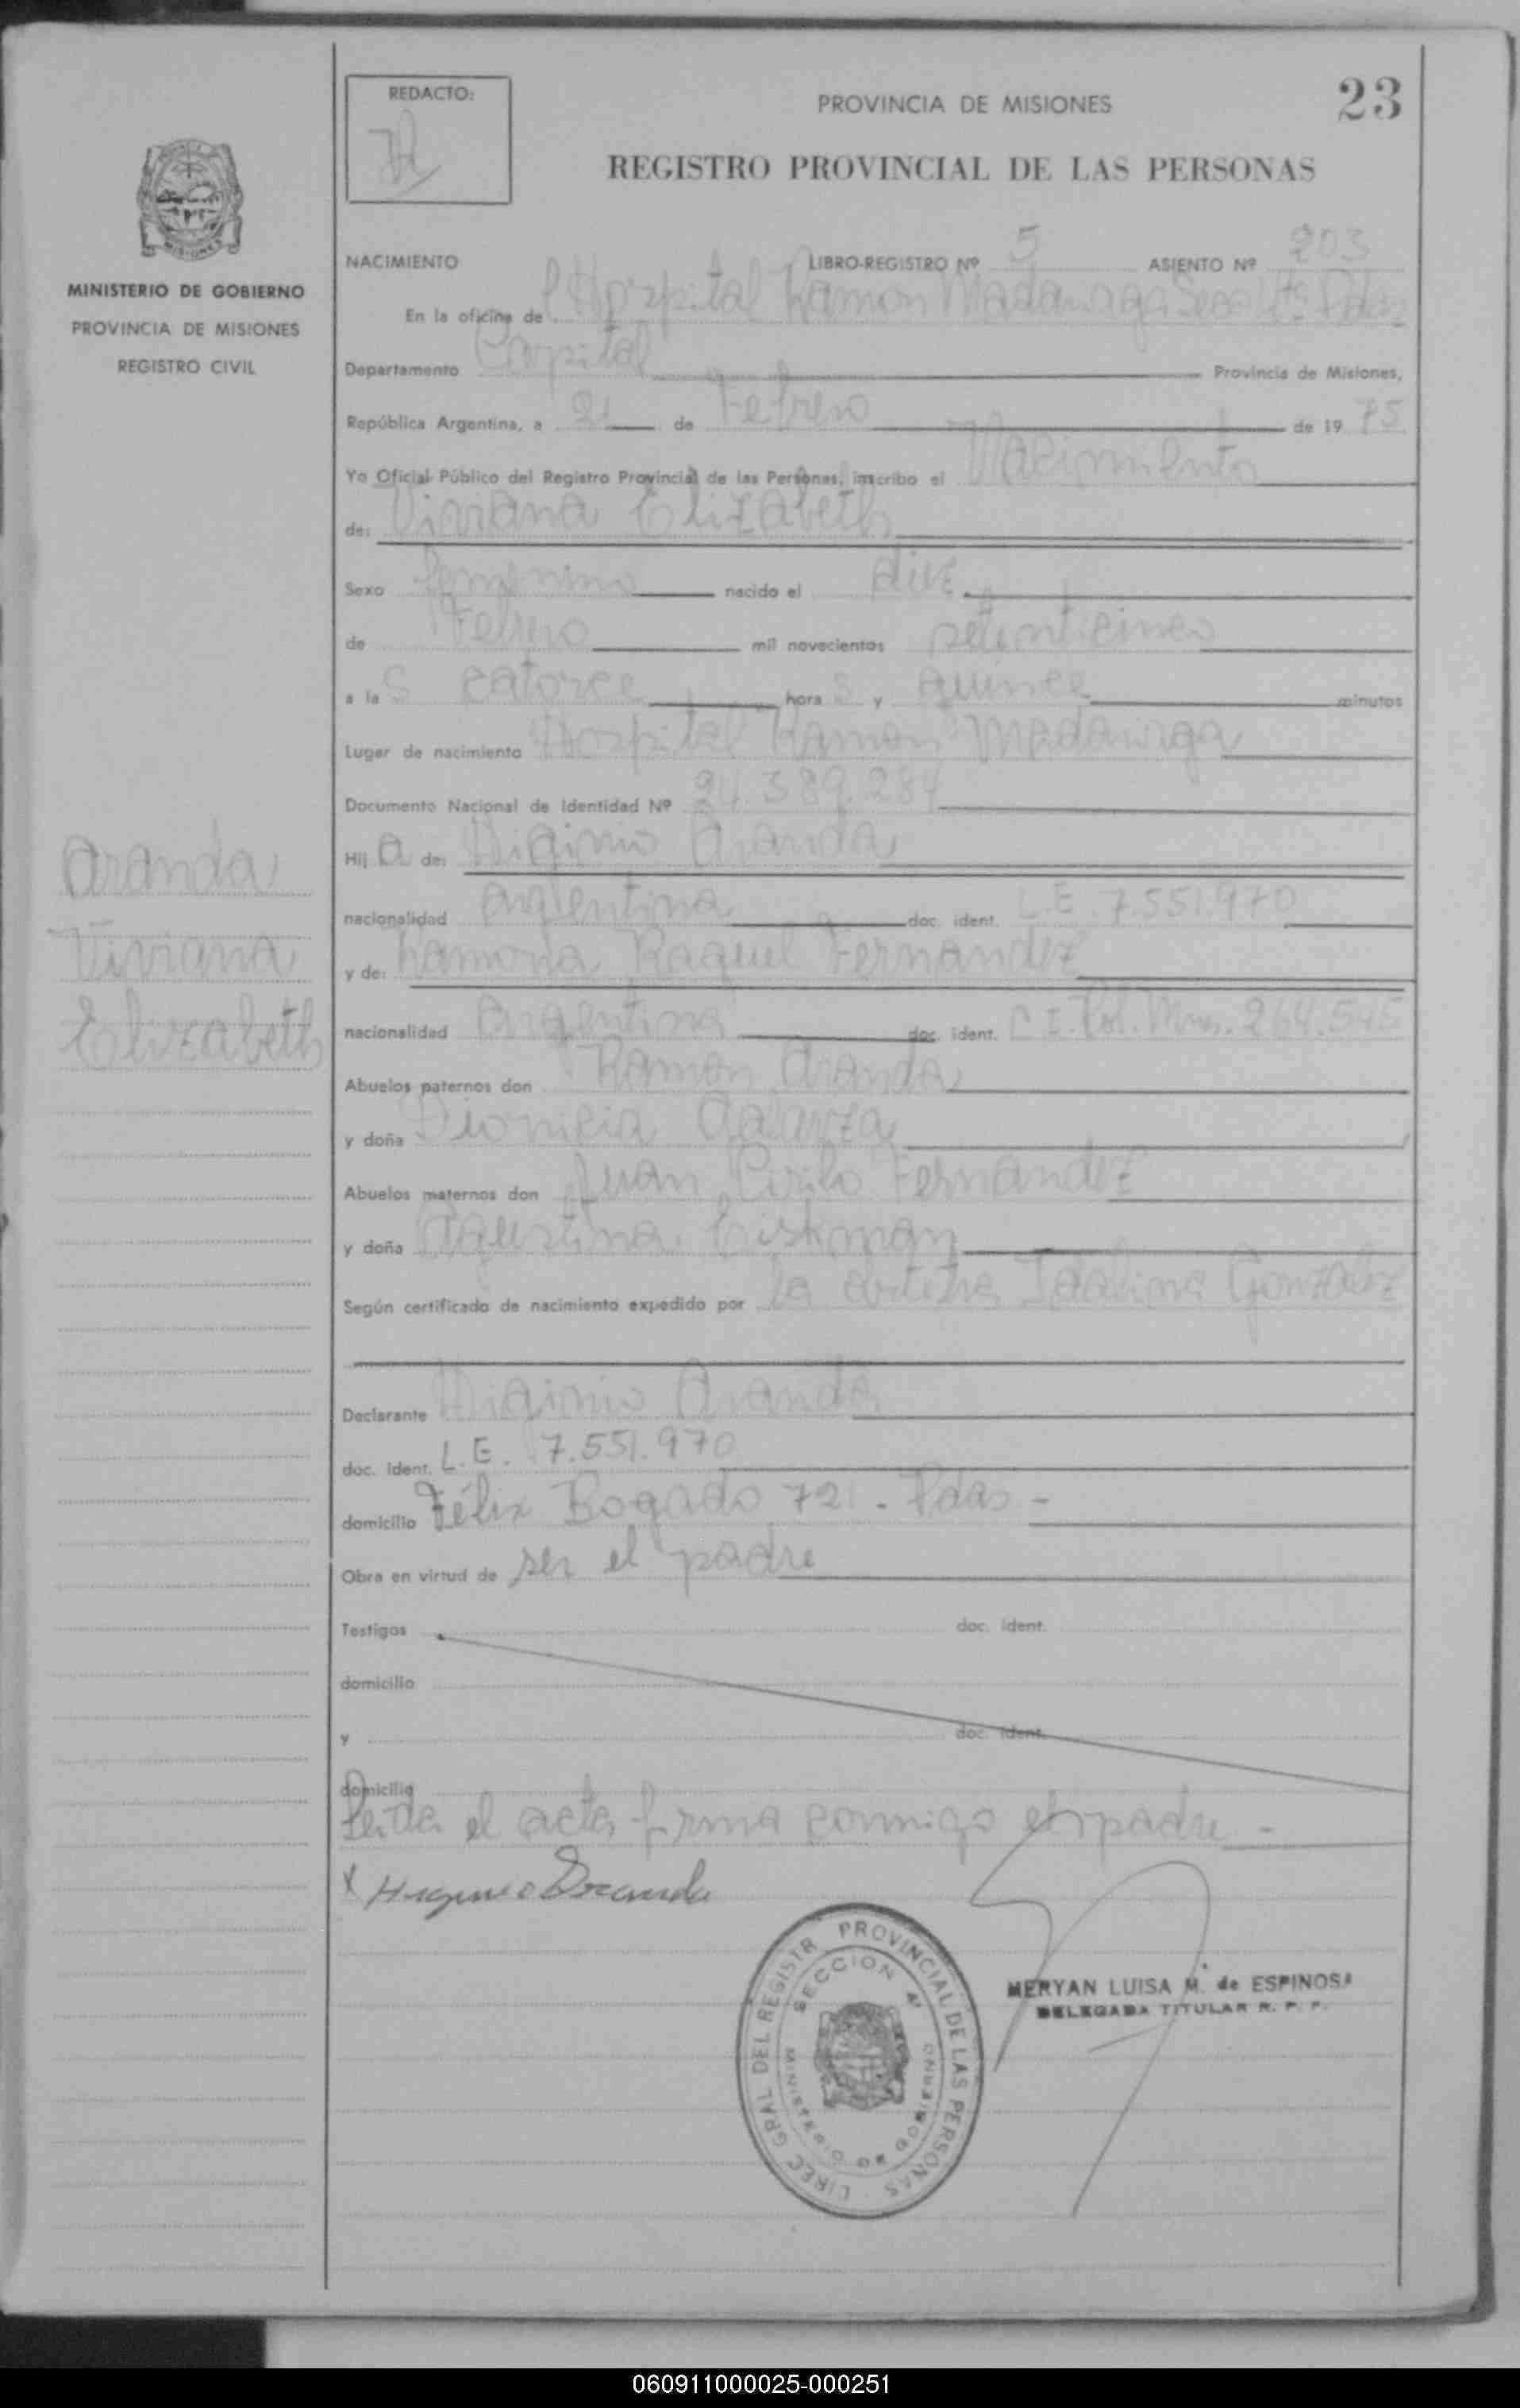 REDACTO:
PROVINCIA DE MISIONES
23
REGISTRO PROVINCIAL DE LAS PERSONAS
MINISTERIO DE GOBIERNO
PROVINCIA DE MISIONES
REGISTRO CIVIL
NACIMIENTO LIBRO-REGISTRO Nº 5 ASIENTO Nº 203
En la oficina de Hospital Ramon Madariaga Secc 4ta Pdas
Departamento Capital Provincia de Misiones,
República Argentina, a 21 de Febrero de 1975
Yo Oficial Público del Registro Provincial de las Personas, inscribo el Nacimiento
de: Viviana Elizabeth
Sexo femenino nacido el diez
de Febrero mil novecientos setenticinco
a las catorce horas y quince minutos
Lugar de nacimiento Hospital Ramon Madariaga
Documento Nacional de Identidad Nº 24.389.284
Hija de: Higinio Aranda
nacionalidad argentina doc. ident. L.E. 7.551.970
y de: Ramona Raquel Fernandez
nacionalidad argentina doc. ident. C.I. Pol. Mnes. 264.545
Abuelos paternos don Ramon Aranda
y doña Dionicia Galarza
Abuelos maternos don Juan Cirilo Fernandez
y doña Agustina
Según certificado de nacimiento expedido por la Idalina Gonzalez
Aranda
Viviana
Elizabeth
Declarante Higinio Aranda
doc. ident. L.E. 7.551.970
domicilio Félix Bogado 721 - Pdas -
Obra en virtud de ser el padre
Testigos doc. ident.
domicilio
y doc. ident.
domicilio
Leida el acta firma conmigo el padre -
x Higinio Aranda
DIREC GRAL DEL REGISTR PROVINCIAL DE LAS PERSONAS
SECCION 4ª
MINISTERIO DE GOBIERNO
MERYAN LUISA M. de ESPINOSA
DELEGADA TITULAR R. P. P.
060911000025-000251